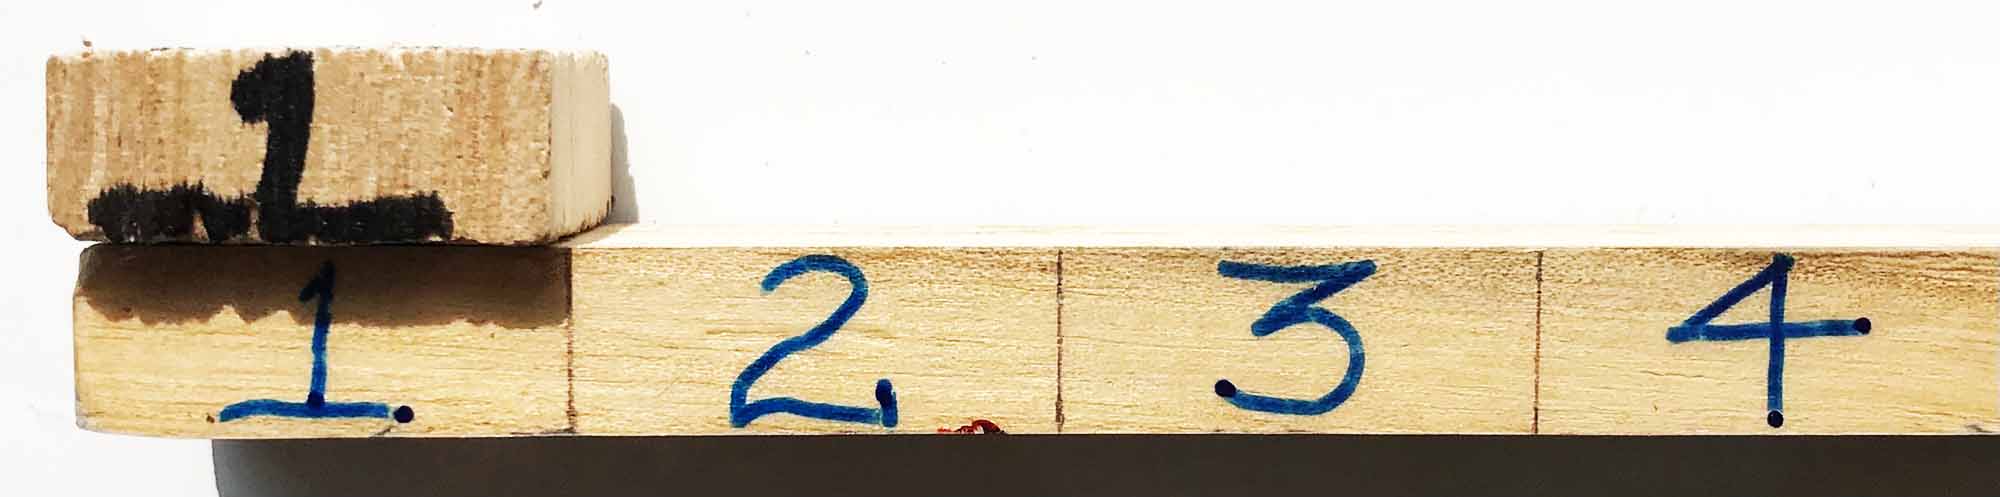 1
1 2 3 4